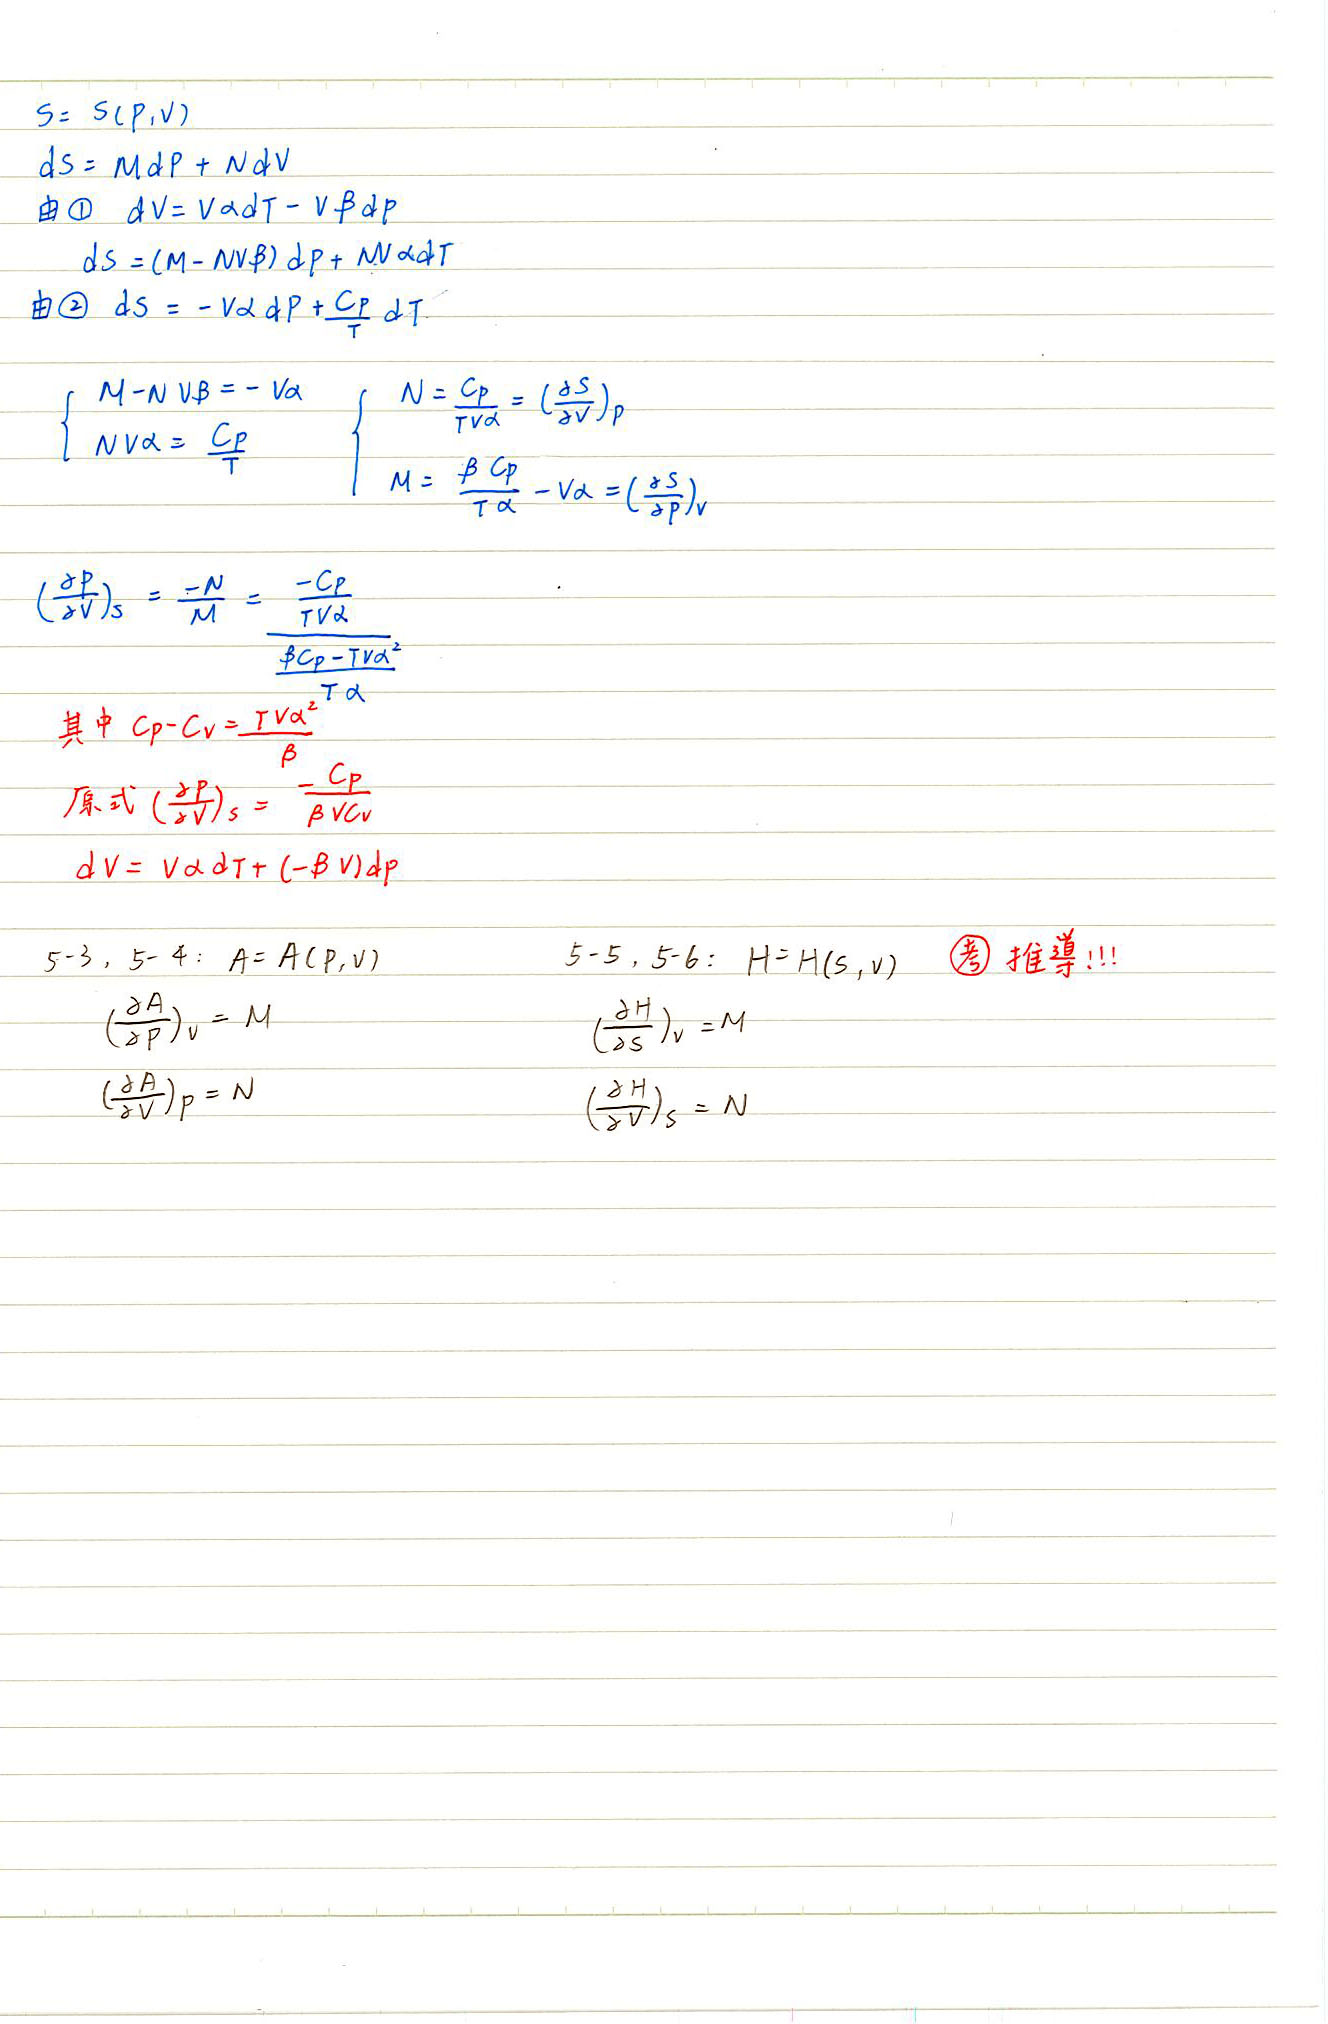 S = S(P,V)
dS = MdP + NdV
由① dV = VαdT - VβdP
dS = (M - NVβ) dP + NVαdT
由② dS = -VαdP + \frac{C_P}{T} dT
{ M - NVβ = -Vα
NVα = \frac{C_P}{T}
{ N = \frac{C_P}{TVα} = (\frac{∂S}{∂V})_P
M = \frac{βC_P}{Tα} - Vα = (\frac{∂S}{∂P})_V
(\frac{∂P}{∂V})_S = \frac{-N}{M} = \frac{\frac{-C_P}{TVα}}{\frac{βC_P - TVα^2}{Tα}}
其中 C_P - C_V = \frac{TVα^2}{β}
原式 (\frac{∂P}{∂V})_S = \frac{-C_P}{βVC_V}
dV = VαdT + (-βV)dP
5-3, 5-4: A = A(P,V)
(\frac{∂A}{∂P})_V = M
(\frac{∂A}{∂V})_P = N
5-5, 5-6: H = H(S,V) 考 推導!!!
(\frac{∂H}{∂S})_V = M
(\frac{∂H}{∂V})_S = N